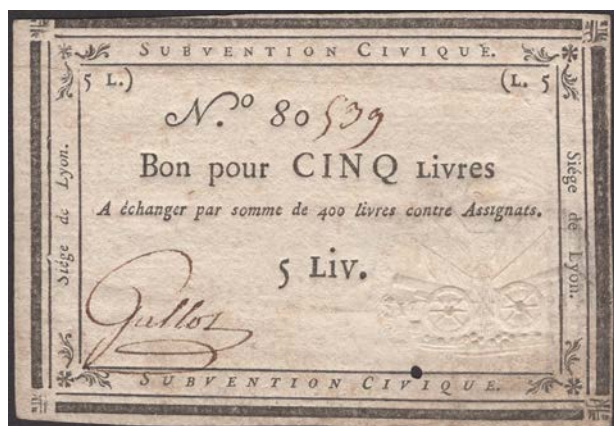 SUBVENTION CIVIQUE.
5 L.)
(L. 5
N.º 80539
Bon pour CINQ Livres
A échanger par somme de 400 livres contre Assignats.
5 Liv.
Siége de Lyon.
Siége de Lyon.
SUBVENTION CIVIQUE.